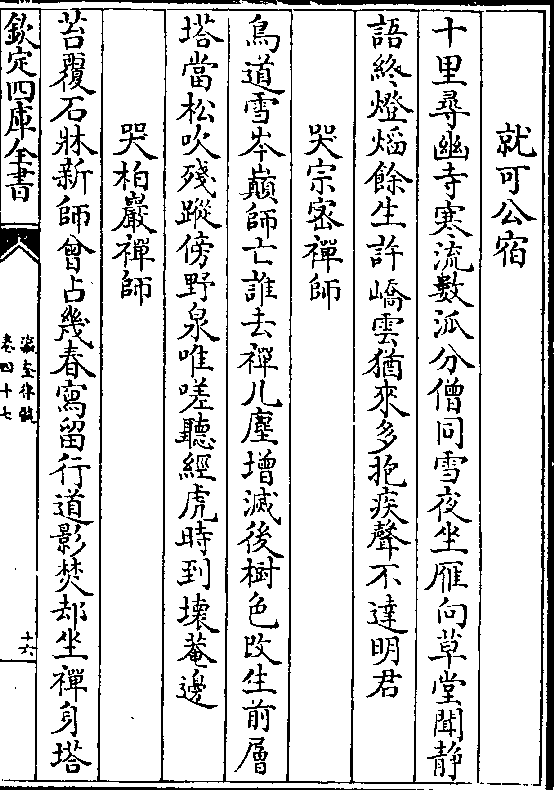 就可公宿
十里尋幽寺寒流數派分僧同雪夜坐雁向草堂聞静
語終燈焰餘生許嶠雲猶來多抱疾聲不達明君
哭宗宻禪師
鳥道雪岑巔師亡誰去禪几塵增滅後樹色改生前層
塔當松吹殘蹤傍野泉唯嗟聽經虎時到壊菴邊
哭柏巖禪師
苔覆石牀新師曾占幾春寫留行道影焚却坐禪身塔
欽定四庫全書
瀛奎律髓
卷四十七
十六